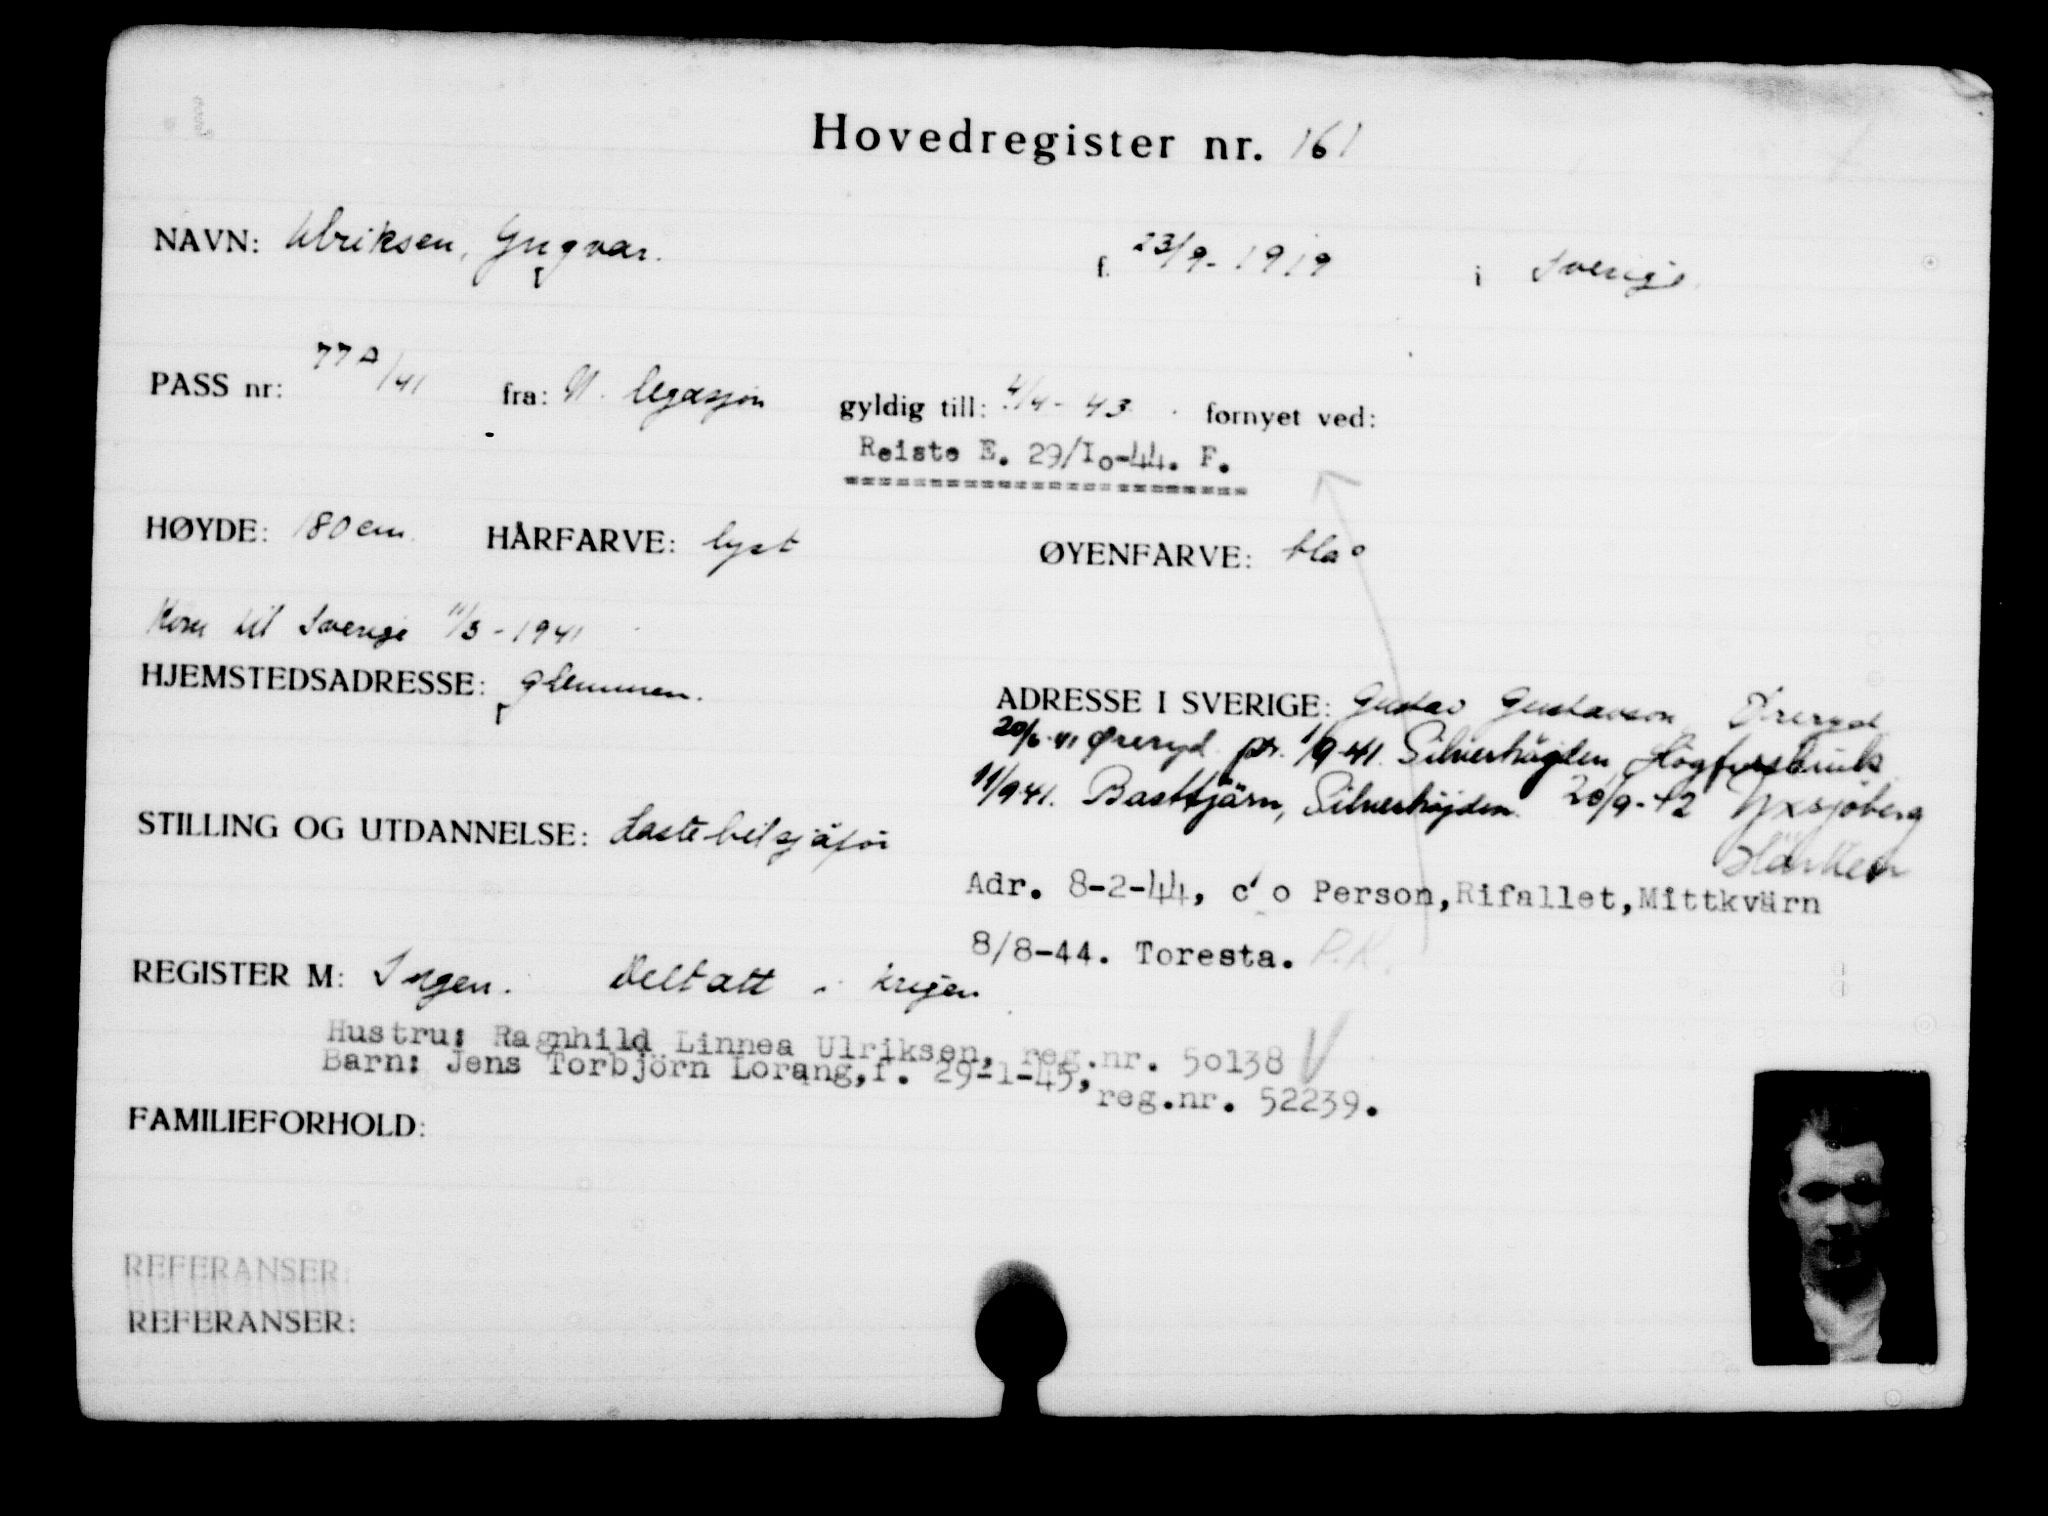 Hovedregister nr. 161
NAVN: Ulriksen, Yngvar. f. 23/9-1919 i Sverige.
PASS nr: 77A/41 fra: N. legasjon gyldig till: 4/4-43. fornyet ved:
Reiste E. 29/Io-44. F.
HØYDE: 180 cm. HÅRFARVE: lyst ØYENFARVE: blå
Kom til Sverige 11/3-1941
HJEMSTEDSADRESSE: Glemmen.
ADRESSE I SVERIGE: Gustav Gustavson, Øreryd
20/6-41 Øreryd. pr. 1/9-41. Silverhöjden, Högforsbruk
11/9-41. Basttjärn, Silverhöjden. 20/9-42 Yxsjöberg
STILLING OG UTDANNELSE: Lastebilsjåfør
Adr. 8-2-44, c/o Person, Rifallet, Mittkvärn
8/8-44. Toresta. P.K.
REGISTER M: Ingen. Deltatt i krigen
Hustru: Ragnhild Linnea Ulriksen, reg.nr. 50138 V
Barn: Jens Torbjörn Lorang, f. 29-1-45, reg.nr. 52239.
FAMILIEFORHOLD:
REFERANSER:
REFERANSER: